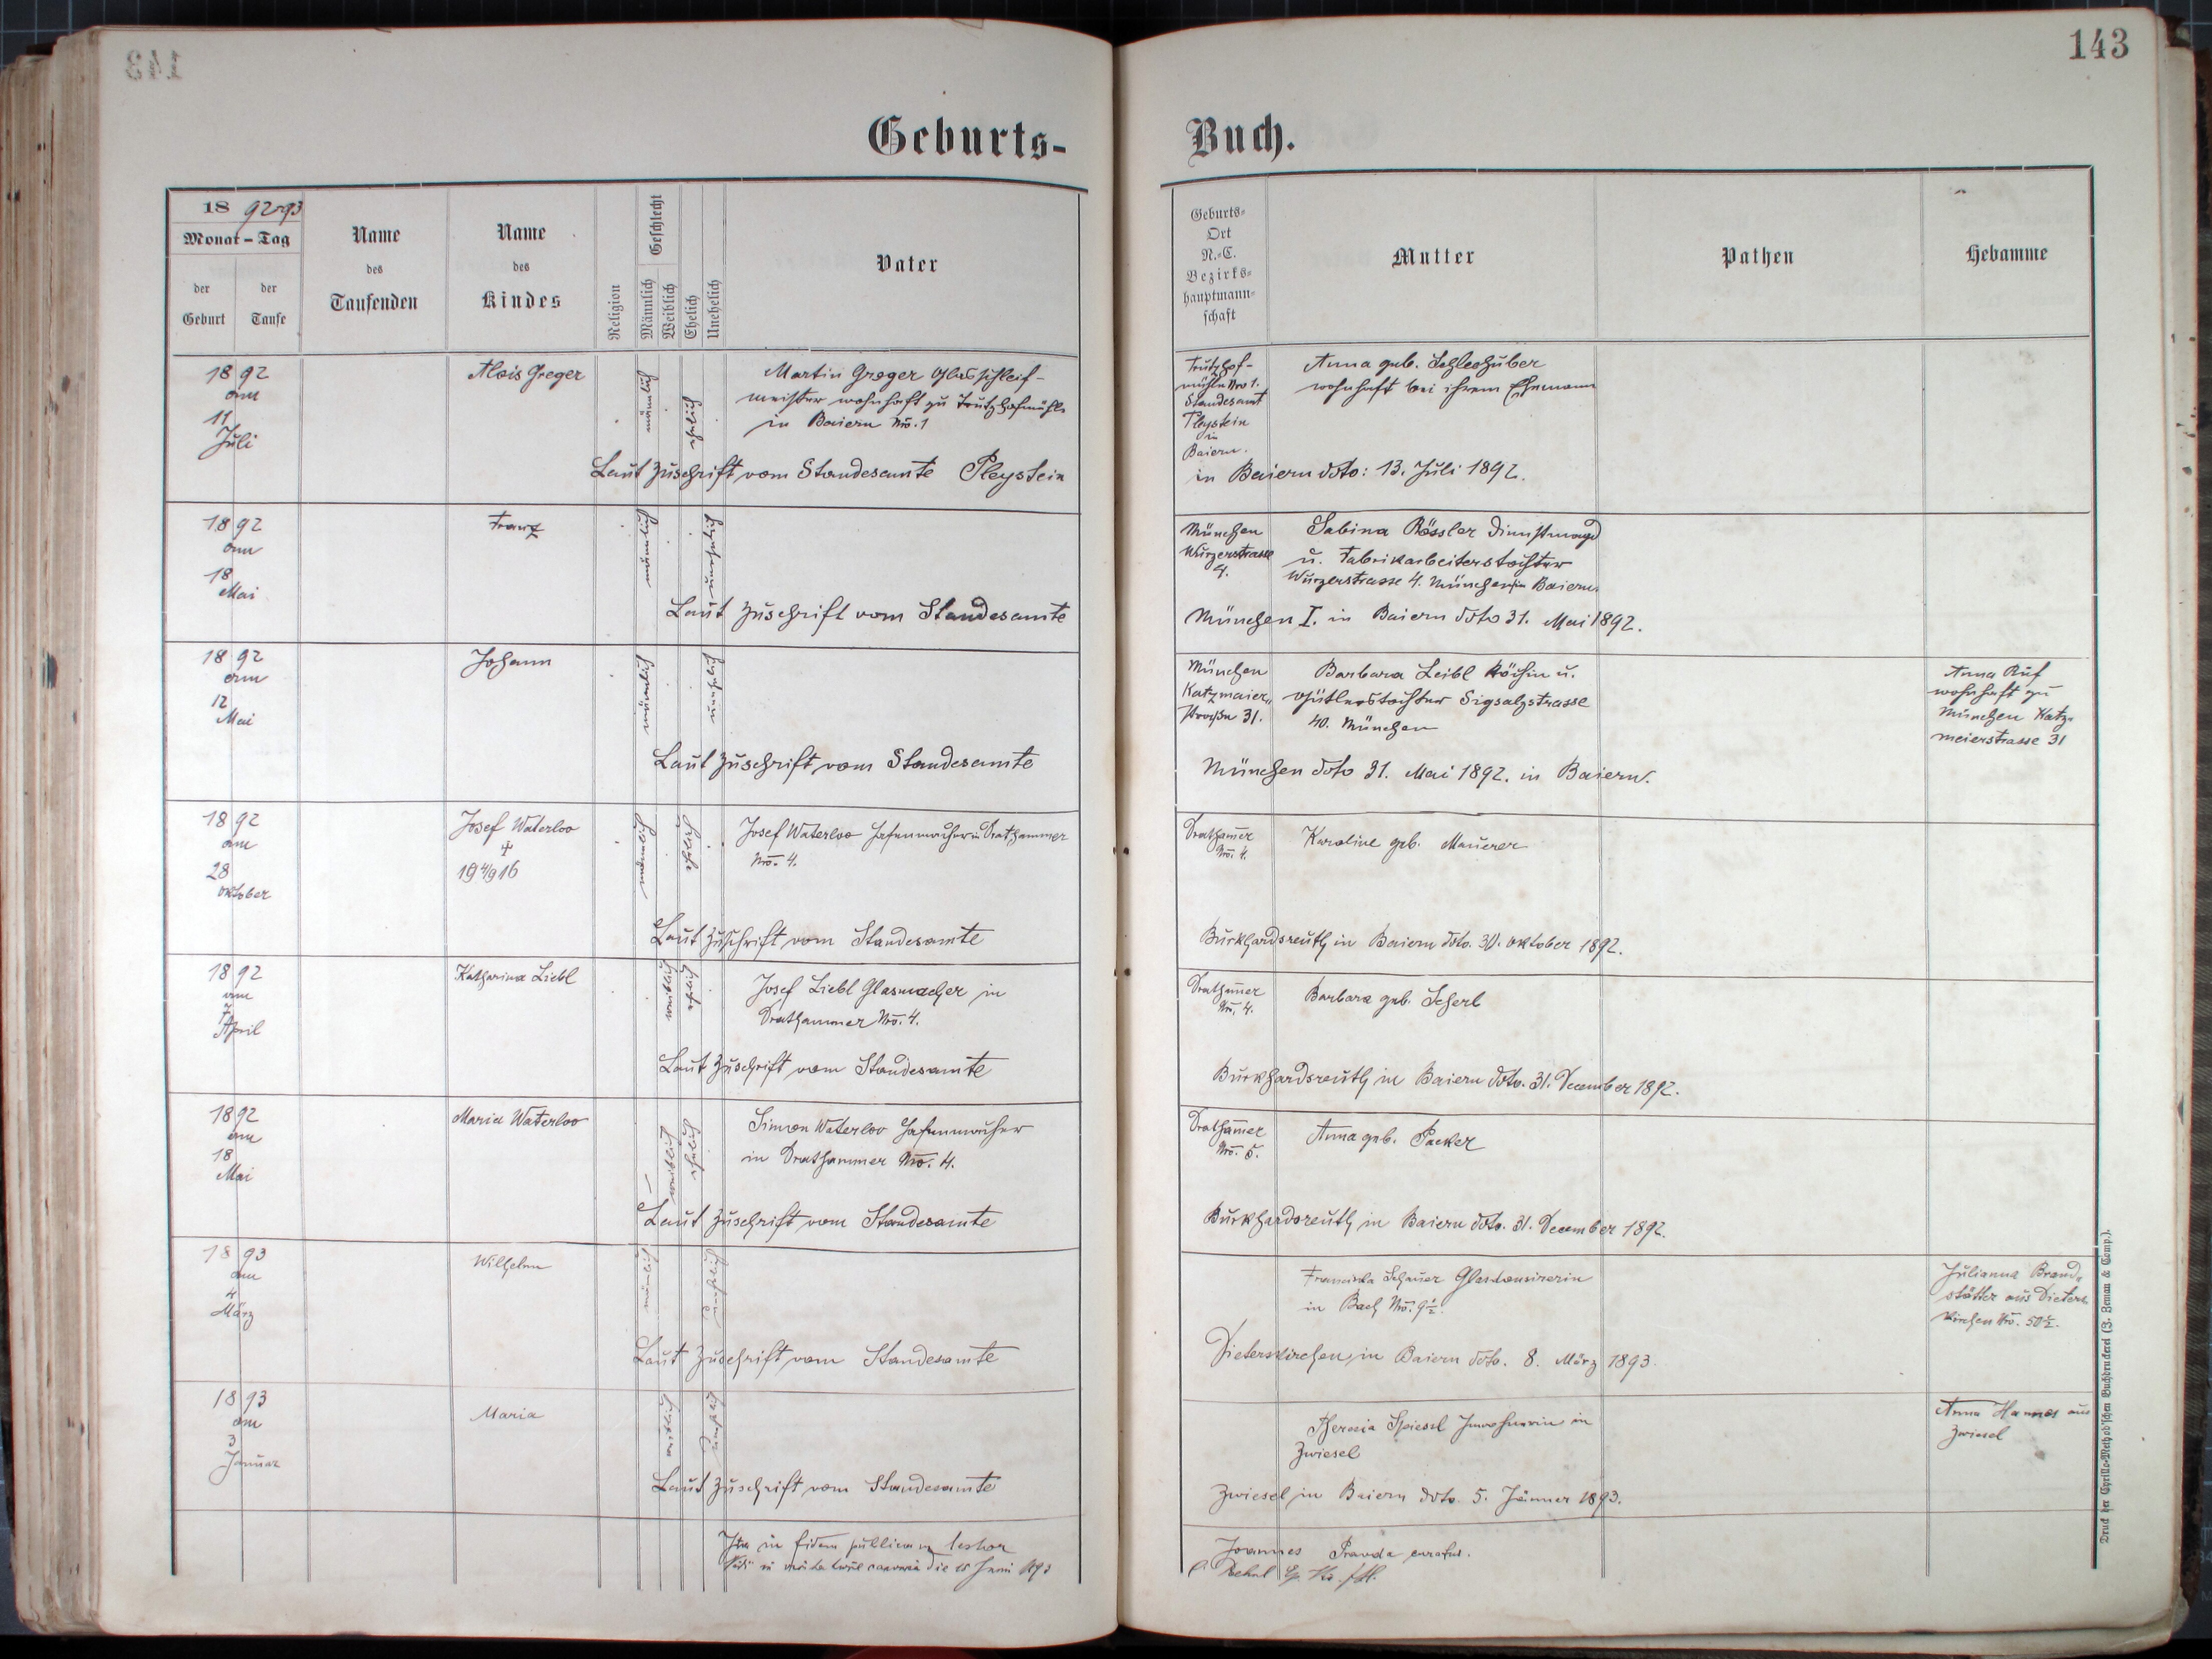 143
Geburts-
Buch.
18 92-93
Monat - Tag
der Geburt
der Taufe
Name des Taufenden
Name des Kindes
Religion
Geschlecht
Männlich
Weiblich
Ehelich
Unehelich
Vater
Geburts-
Ort
N.-C.
Bezirks-
hauptmann-
schaft
Mutter
Pathen
Hebamme
1892
am
11
Juli
Alois Greger
Martin Greger Glasschleif-
meister wohnhaft zu Trutzhofmühle
in Baiern No. 1
Trutzhof-
mühle No 1.
Standesamt
Pleystein
in
Baiern.
Anna geb. Schleghuber
wohnhaft bei ihrem Ehemann
Laut Zuschrift vom Standesamte Pleystein
in Baiern dto: 13. Juli 1892.
1892
am
18
Mai
Franz
München
Wurzerstrasse
4.
Sabina Rössler Dienstmagd
u. Fabrikarbeiterstochter
Wurzerstrasse 4. München in Baiern.
Laut Zuschrift vom Standesamte
München I. in Baiern dto 31. Mai 1892.
1892
am
12
Mai
Johann
München
Katzmaier„
strasse 31.
Barbara Leibl Köchin u.
Gütlerstochter Sigsalzstrasse
40. München
Anna Ruf
wohnhaft zu
München Katz-
meierstrasse 31
Laut Zuschrift vom Standesamte
München dto 31. Mai 1892. in Baiern.
1892
am
28
Oktober
Josef Waterloo
†
19 4/9 16
Josef Waterloo Hafenmacher in Drathammer
No. 4.
Drathamer
No. 4.
Karoline geb. Mauerer
Laut Zuschrift vom Standesamte
Burkhardsreuth in Baiern dto. 30. Oktober 1892.
1892
am
7
April
Katharina Liebl
Josef Liebl Glasmacher in
Drathammer No. 4.
Drathamer
No. 4.
Barbara geb. Scherl
Laut Zuschrift vom Standesamte
Burkhardsreuth in Baiern dto. 31. December 1892.
1892
am
18
Mai
Maria Waterloo
Simon Waterloo Hafenmacher
in Drathammer No. 4.
Drathamer
No. 5.
Anna geb. Packer
Laut Zuschrift vom Standesamte
Burkhardsreuth in Baiern dto. 31. December 1892.
1893
am
4
März
Wilhelm
männlich
unehelich
Franziska Schauer
in Bach No. 9½.
Julianna Brand-
stätter aus Dieters-
kirchen No. 50½.
Laut Zuschrift vom Standesamte
Dieterskirchen in Baiern dto. 8. März 1893.
1893
am
3
Januar
Maria
Theresia Spiessl Inwohnerin in
Zwiesel
Anna Hannes aus
Zwiesel
Laut Zuschrift vom Standesamte
Zwiesel in Baiern dto. 5. Jänner 1893.
Ita in fidem publicam testor
Joannes Pravda curatus.
Druck der Cyrillo-Method'schen Buchdruckerei (J. Zeman & Comp.).